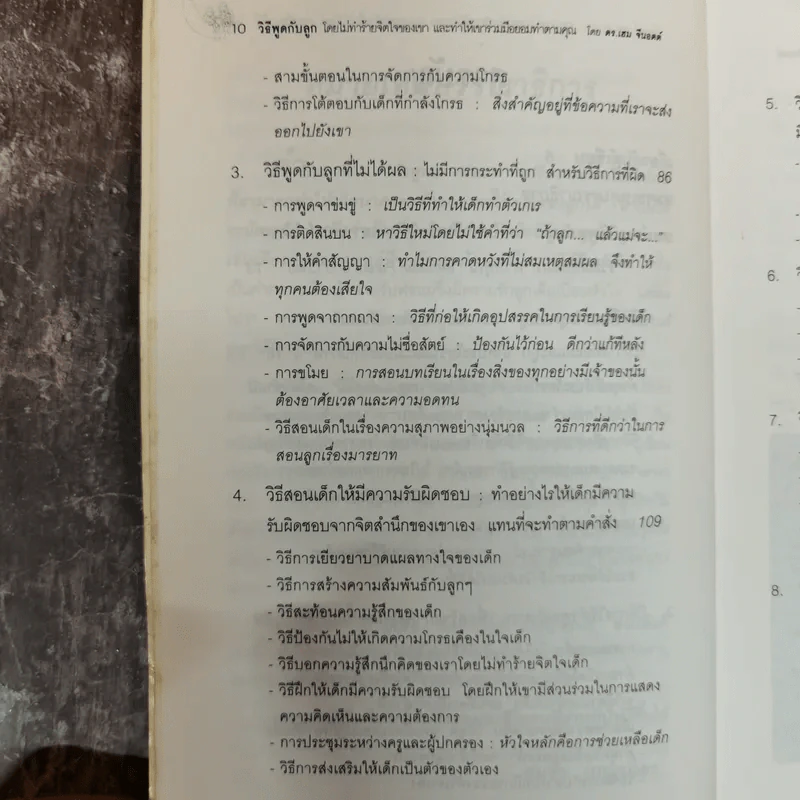 10 วิธีพูดกับลูก โดยไม่ทำร้ายจิตใจของเขา และทำให้เขาร่วมมือยอมทำตามคุณ โดย ดร.เฮม จีนอตต์
- สามขั้นตอนในการจัดการกับความโกรธ
- วิธีการโต้ตอบกับเด็กที่กำลังโกรธ : สิ่งสำคัญอยู่ที่ข้อความที่เราจะส่ง
ออกไปยังเขา
3. วิธีพูดกับลูกที่ไม่ได้ผล : ไม่มีการกระทำที่ถูก สำหรับวิธีการที่ผิด 86
- การพูดจาข่มขู่ : เป็นวิธีที่ทำให้เด็กทำตัวเกเร
- การติดสินบน : หาวิธีใหม่โดยไม่ใช้คำที่ว่า "ถ้าลูก... แล้วแม่จะ..."
- การให้คำสัญญา : ทำไมการคาดหวังที่ไม่สมเหตุสมผล จึงทำให้
ทุกคนต้องเสียใจ
- การพูดจาถากถาง : วิธีที่ก่อให้เกิดอุปสรรคในการเรียนรู้ของเด็ก
- การจัดการกับความไม่ซื่อสัตย์ : ป้องกันไว้ก่อน ดีกว่าแก้ทีหลัง
- การขโมย : การสอนบทเรียนในเรื่องสิ่งของทุกอย่างมีเจ้าของนั้น
ต้องอาศัยเวลาและความอดทน
- วิธีสอนเด็กในเรื่องความสุภาพอย่างนุ่มนวล : วิธีการที่ดีกว่าในการ
สอนลูกเรื่องมารยาท
4. วิธีสอนเด็กให้มีความรับผิดชอบ : ทำอย่างไรให้เด็กมีความ
รับผิดชอบจากจิตสำนึกของเขาเอง แทนที่จะทำตามคำสั่ง 109
- วิธีการเยียวยาบาดแผลทางใจของเด็ก
- วิธีการสร้างความสัมพันธ์กับลูกๆ
- วิธีสะท้อนความรู้สึกของเด็ก
- วิธีป้องกันไม่ให้เกิดความโกรธเคืองในใจเด็ก
- วิธีบอกความรู้สึกนึกคิดของเราโดยไม่ทำร้ายจิตใจเด็ก
- วิธีฝึกให้เด็กมีความรับผิดชอบ โดยฝึกให้เขามีส่วนร่วมในการแสดง
ความคิดเห็นและความต้องการ
- การประชุมระหว่างครูและผู้ปกครอง : หัวใจหลักคือการช่วยเหลือเด็ก
- วิธีการส่งเสริมให้เด็กเป็นตัวของตัวเอง
5.
6.
7.
8.